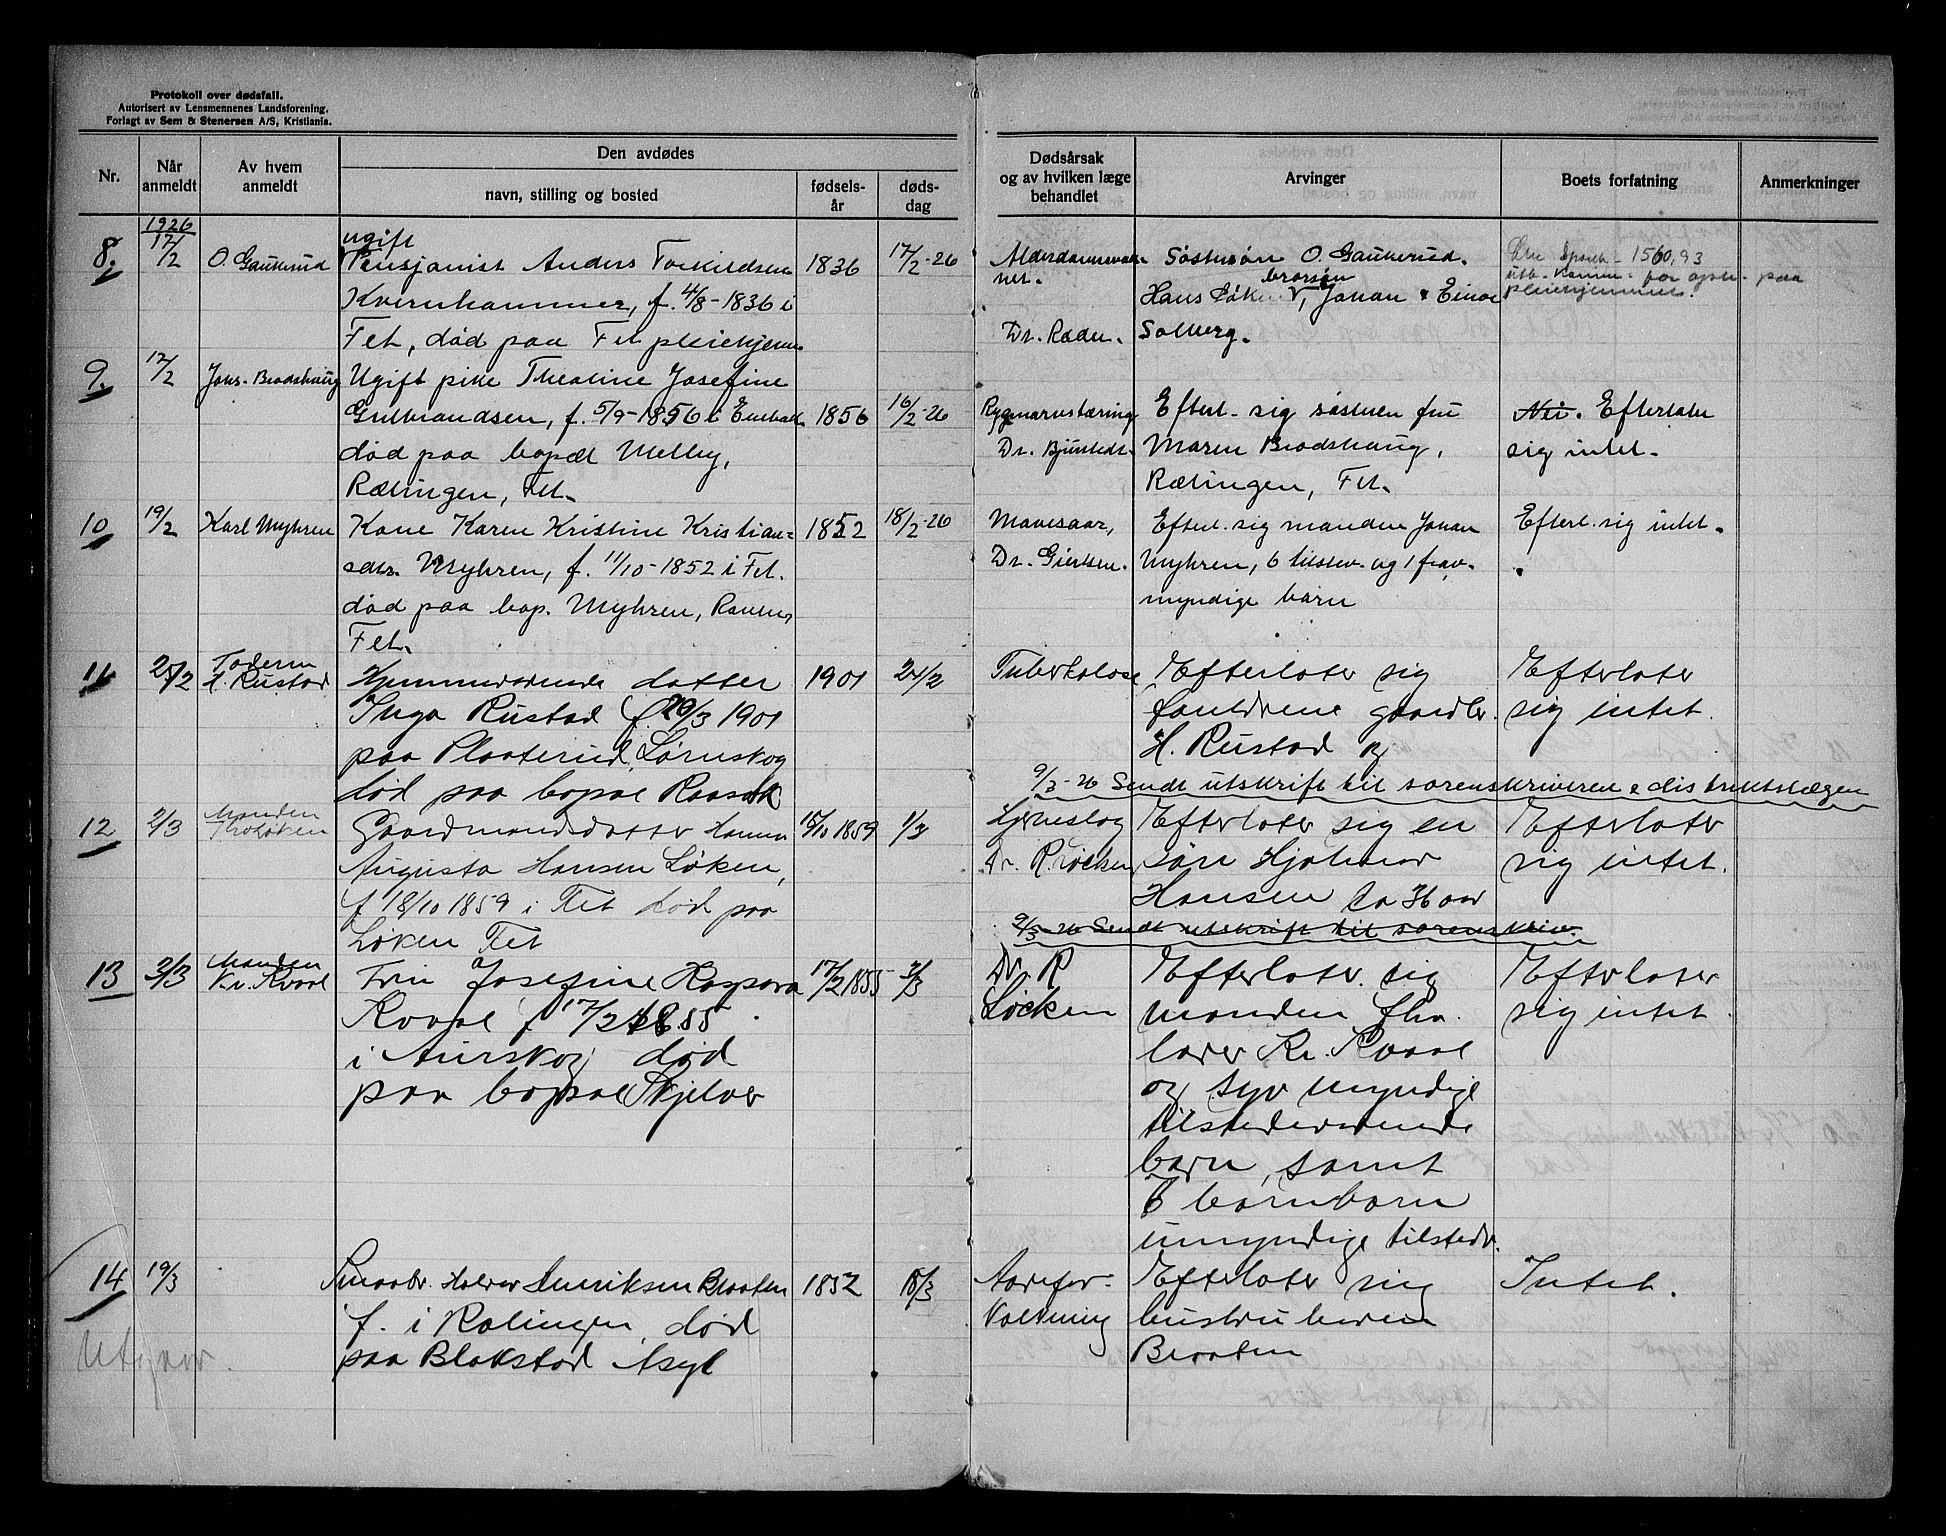 Protokoll over dødsfall.
Autorisert av Lensmennenes Landsforening.
Forlagt av Sem & Stenersen A/S, Kristiania.
Nr.
Når anmeldt
Av hvem anmeldt
Den avdødes
navn, stilling og bosted
fødsels-år
døds-dag
Dødsårsak og av hvilken læge behandlet
Arvinger
Boets forfatning
Anmerkninger
1926
8. 17/2 O. Gaukerud
ugift
Pensjonist Anders Torkildsen 1836 17/2-26
Kvernhammer, f. 4/8-1836 i
Fet, død paa Fet pleiehjem
Dr. Røder.
Søstersøn O. Gaukerud.
brorsøn
Hans Løken, Johan & Einar
Solberg.
1560,93
paa
pleiehjemmet.
9. 17/2 Johs. Bradshaug
Ugift pike Theoline Josefine
Gulbrandsen, f. 5/9-1856 i Enebak 1856 16/2-26
død paa bopæl Melby,
Rælingen, Fet.
Rygmarvstæring
Dr. Bjursteds.
Efterl. sig søsteren fru
Maren Bradshaug,
Rælingen, Fet.
Nei. Efterlater
sig intet.
10 19/2 Karl Myhren
Kone Karen Kristine Kristian= 1852 18/2-26
datr. Myhren, f. 11/10-1852 i Fet.
død paa bop. Myhren,
Fet.
Mavesaar,
Dr. Giertsen.
Efterl. sig manden Johan
Myhren, 6 tilstev. og 1 frav.
myndige barn
Efterl. sig intet.
11 25/2 Faderen
H. Rustad
Hjemmeværende datter 1901 24/2
Inga Rustad f. 20/3 1901
paa Plaaterud, Lørenskog
død paa bopæl
Tuberkolose
Efterlater sig
foreldrene gaardbr.
H. Rustad og
Efterlater
sig intet.
9/3-26 Sendt utskrift til sorenskriveren & distriktslægen
12 2/3 Manden
Th. Løken
Gaardmandsdatter Hanna 18/10 1859 1/3
Augusta Hansen Løken,
f 18/10 1859 i Fet død paa
Løken Fet
Hjerneslag
Dr. R. Løcken
Efterlater sig en
søn Hjalmar
Hansen ca 36 aar
Efterlater
sig intet.
9/3-26 Sendt utskrift til sorenskriv.
13 3/3 Manden
Kr. Kvaal
Fru Josefine Kaspara 17/2 1855 2/3
Kvaal f 17/2 1855
i Aurskog død
paa bopæl Skjelver
Dr. R
Løcken
Efterlater sig
manden
Kr. Kvaal
og syv myndige
tilstedeværende
barn, samt
6 barnbarn
umyndige tilstedv.
Efterlater
sig intet
14 19/3
Smaabr. Halvor Henriksen Braaten 1852 18/3
f. i Rælingen, død
paa Blakstad Asyl
Aarefor-
kalkning
Efterlater sig
hustru
Braaten
Intet.
Utgaar.